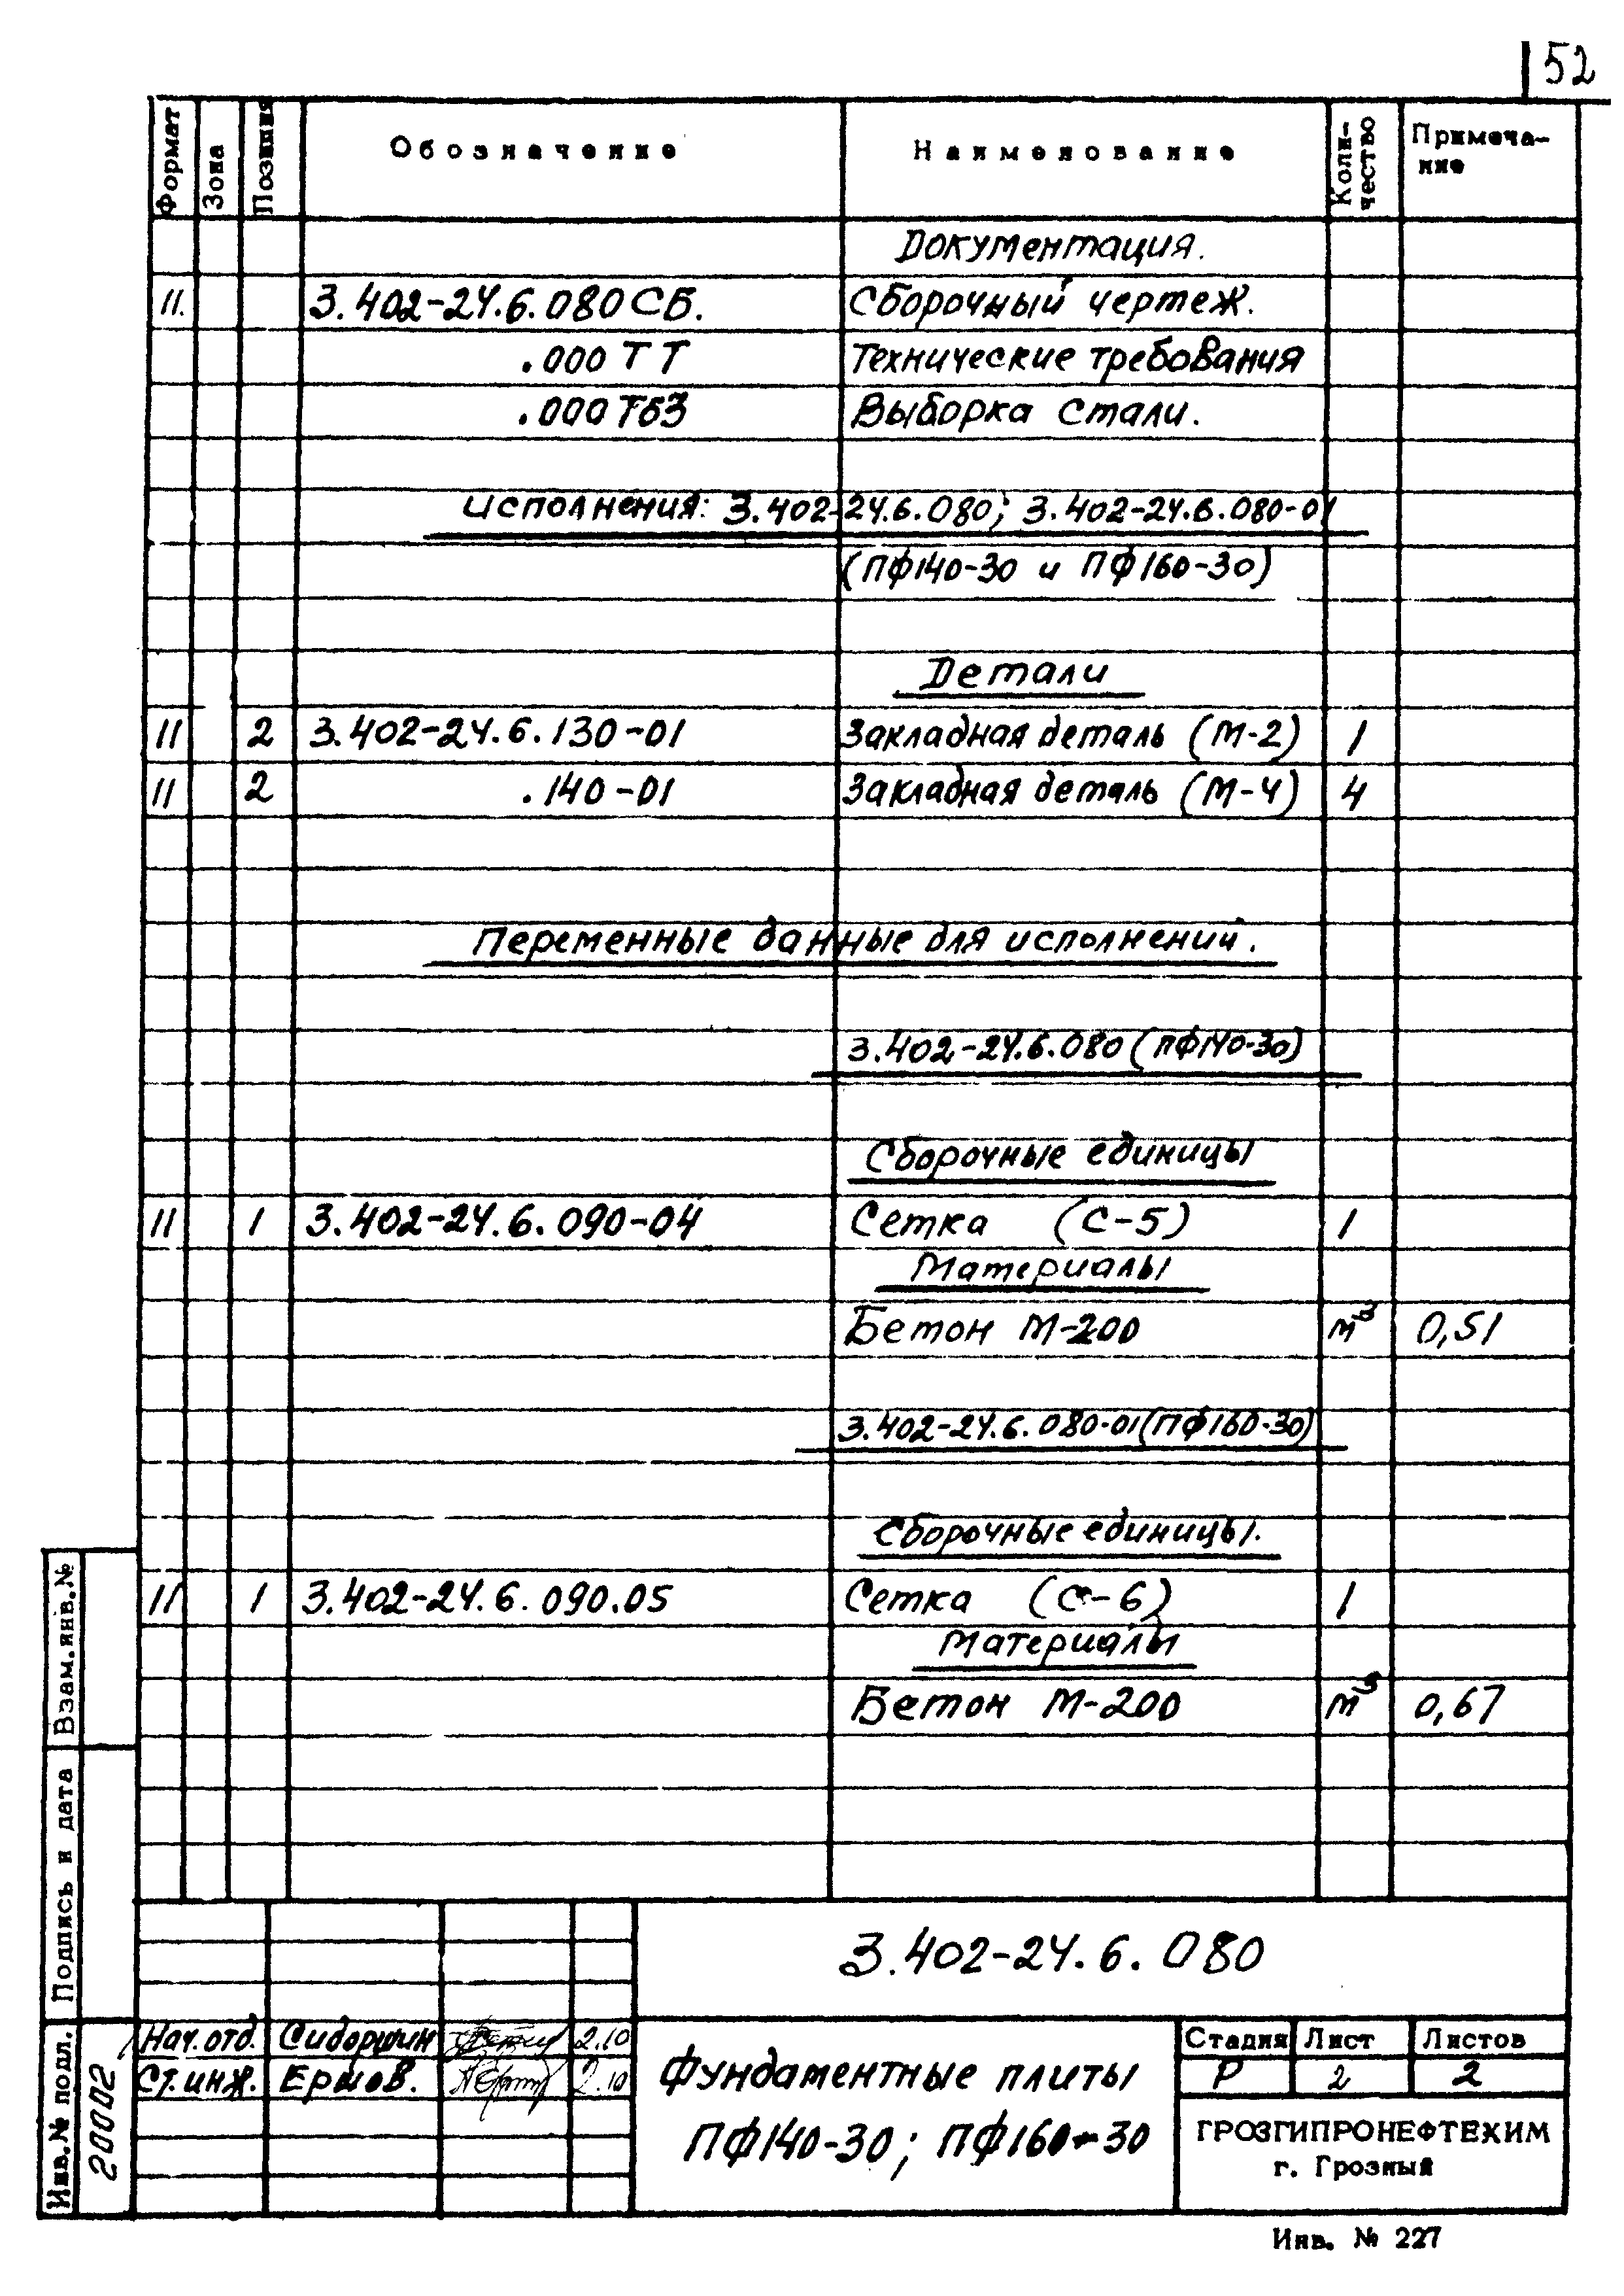 52
Формат Зона Позиция Обозначение Наименование Коли-чество Примеча-ние
Документация.
11. 3.402-24.6.080 СБ. Сборочный чертеж.
.000 ТТ Технические требования
.000 ТБ3 Выборка стали.
исполнения: 3.402-24.6.080; 3.402-24.6.080-01
(ПФ140-30 и ПФ160-30)
Детали
11 2 3.402-24.6.130-01 Закладная деталь (М-2) 1
11 2 .140-01 Закладная деталь (М-4) 4
Переменные данные для исполнений.
3.402-24.6.080 (ПФ140-30)
Сборочные единицы
11 1 3.402-24.6.090-04 Сетка (С-5) 1
Материалы
Бетон М-200 м³ 0,51
3.402-24.6.080-01 (ПФ160-30)
Сборочные единицы.
11 1 3.402-24.6.090.05 Сетка (С-6) 1
Материалы
Бетон М-200 м³ 0,67
Взам.инв.№
Подпись и дата
Инв.№ подл.
20002
3.402-24.6.080
Нач.отд. 2.10
Ст.инж. Ершов. 2.10
Фундаментные плиты
ПФ140-30; ПФ160-30
Стадия Лист Листов
Р 2 2
ГРОЗГИПРОНЕФТЕХИМ
г. Грозный
Инв. № 227